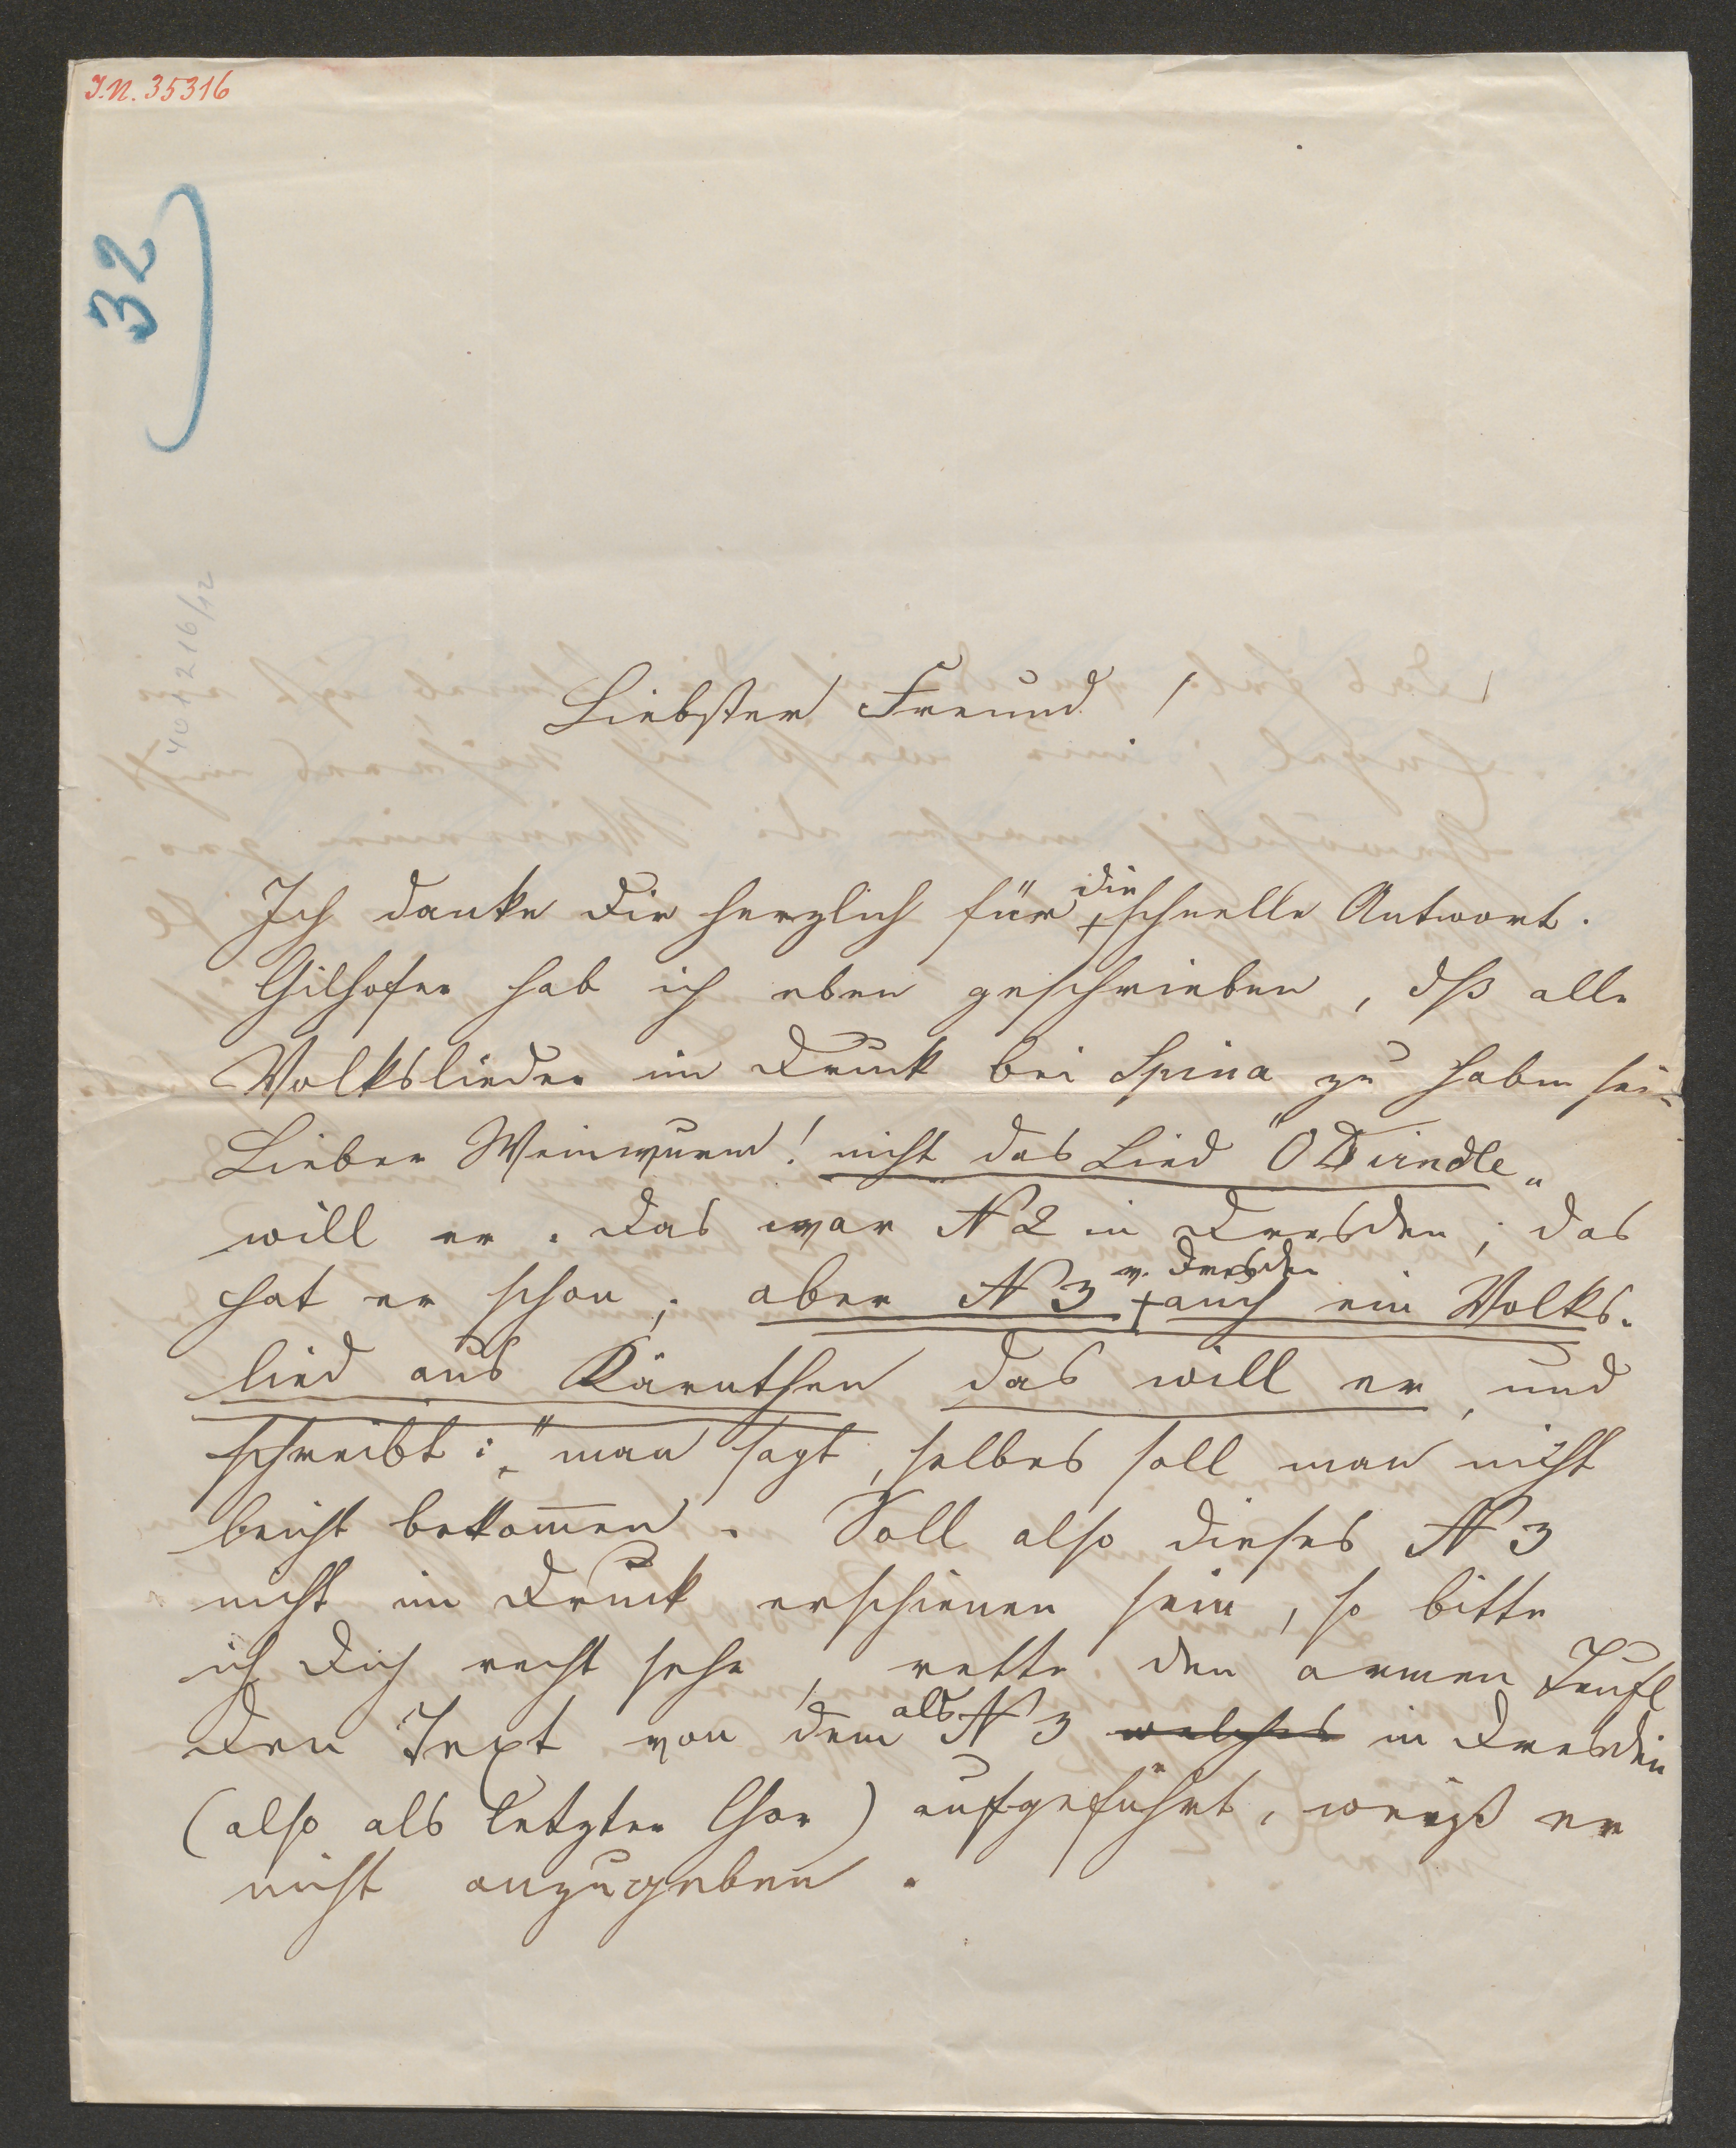 I.N. 35316
32
401216/12
Liebster Freund!
Ich danke Dir herzlich für die schnelle Antwort.
Gilhofer hab ich eben geschrieben, dß alle
Volkslieder im Druck bei Spina zu haben sei=
Lieber Weinwurm! nicht das Lied "O Dirndle„
will er. Das war N 2 in Dresden; das
hat er schon; aber N 3 v. Dresden auch ein Volks-
lied aus Kärnthen das will er, und
schreibt: „man sagt, selbes soll man nicht
leicht bekom̅en. Soll also dieses N 3
nicht im Druck erschienen sein, so bitte
ich Dich recht sehr, rette den armen Teufl
Den Text von dem als N 3 welches in Dresden
(also als letzter Chor) aufgeführt, weiß er
nicht anzugeben.